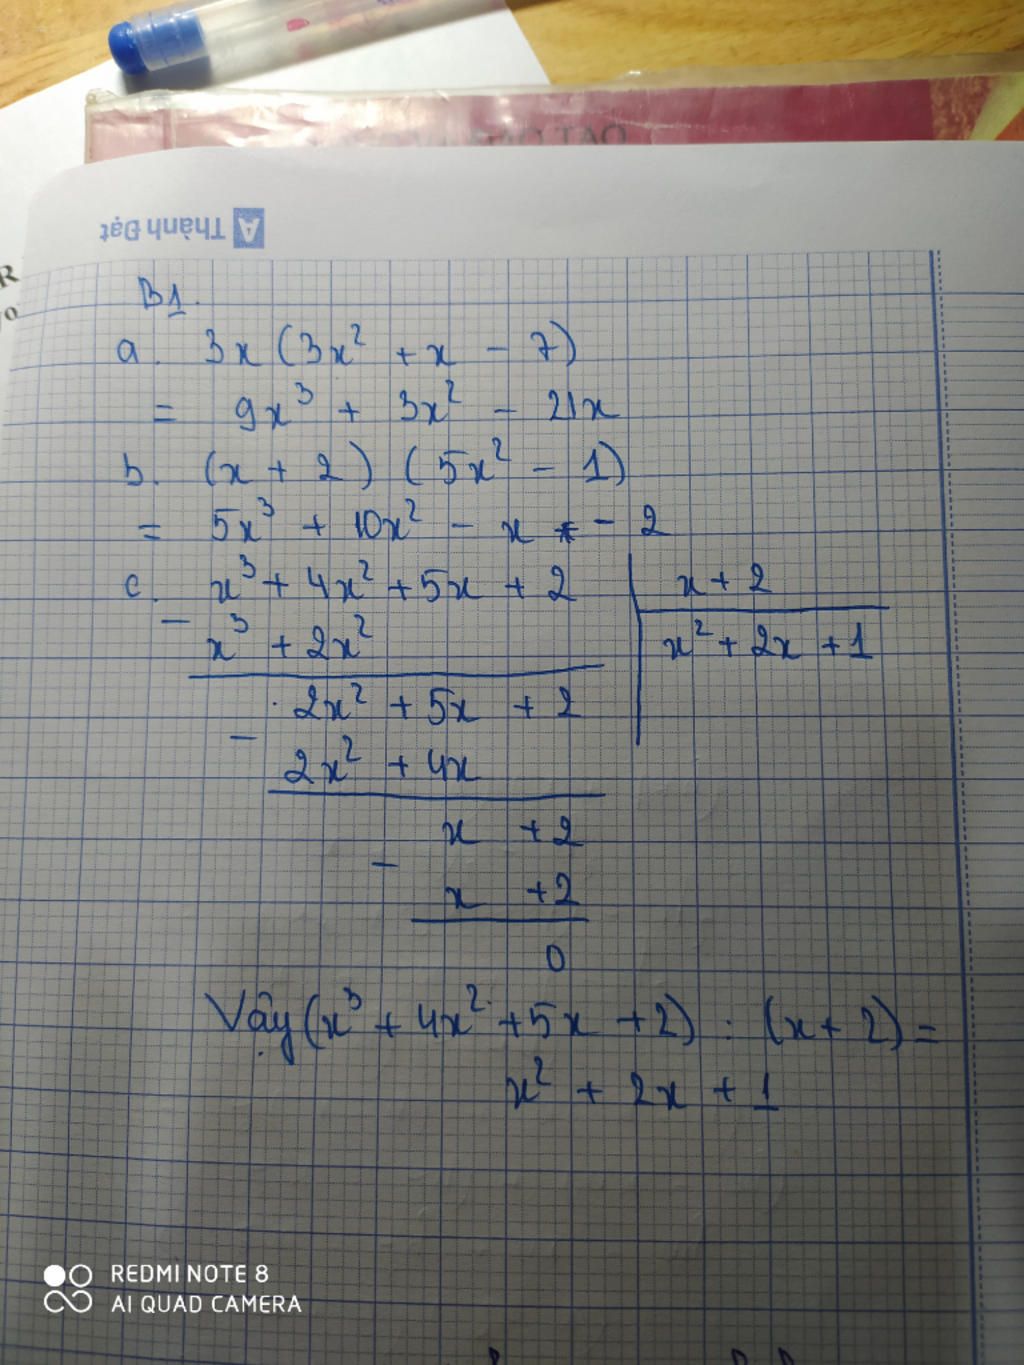 ĐÀO TẠO
Thành Đạt
B1.
a. 3x (3x² + x - 7)
= 9x³ + 3x² - 21x
b. (x + 2) (5x² - 1)
= 5x³ + 10x² - x - 2
c. x³ + 4x² + 5x + 2 | x + 2
- x³ + 2x² | x² + 2x + 1
2x² + 5x + 2
- 2x² + 4x
x + 2
- x + 2
0
Vậy (x³ + 4x² + 5x + 2) : (x + 2) =
x² + 2x + 1
REDMI NOTE 8
AI QUAD CAMERA